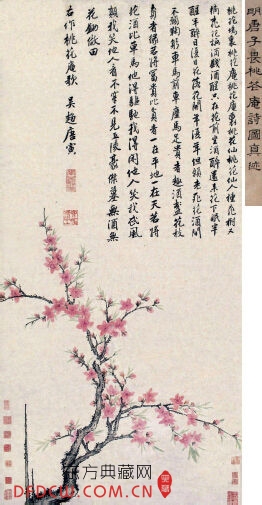 明唐子畏桃花菴詩圖真迹
桃花塢裏桃花庵桃花庵裏桃花仙桃花仙人種桃樹又
摘桃花換酒錢酒醒只在花前坐酒醉還來花下眠半
醒半醉日復日花落花開年復年但願老死花酒間
不願鞠躬車馬前車塵馬足貴者趣酒盞花枝
貧者緣若將富貴比貧者一在平地一在天若將
花酒比車馬他得驅馳我得閒他人笑我忒風
顛我笑他人看不穿不見五陵豪傑墓無酒無
花鋤做田
右作桃花庵歌 吳趨唐寅
东方典藏网
DFDCW.COM.CN